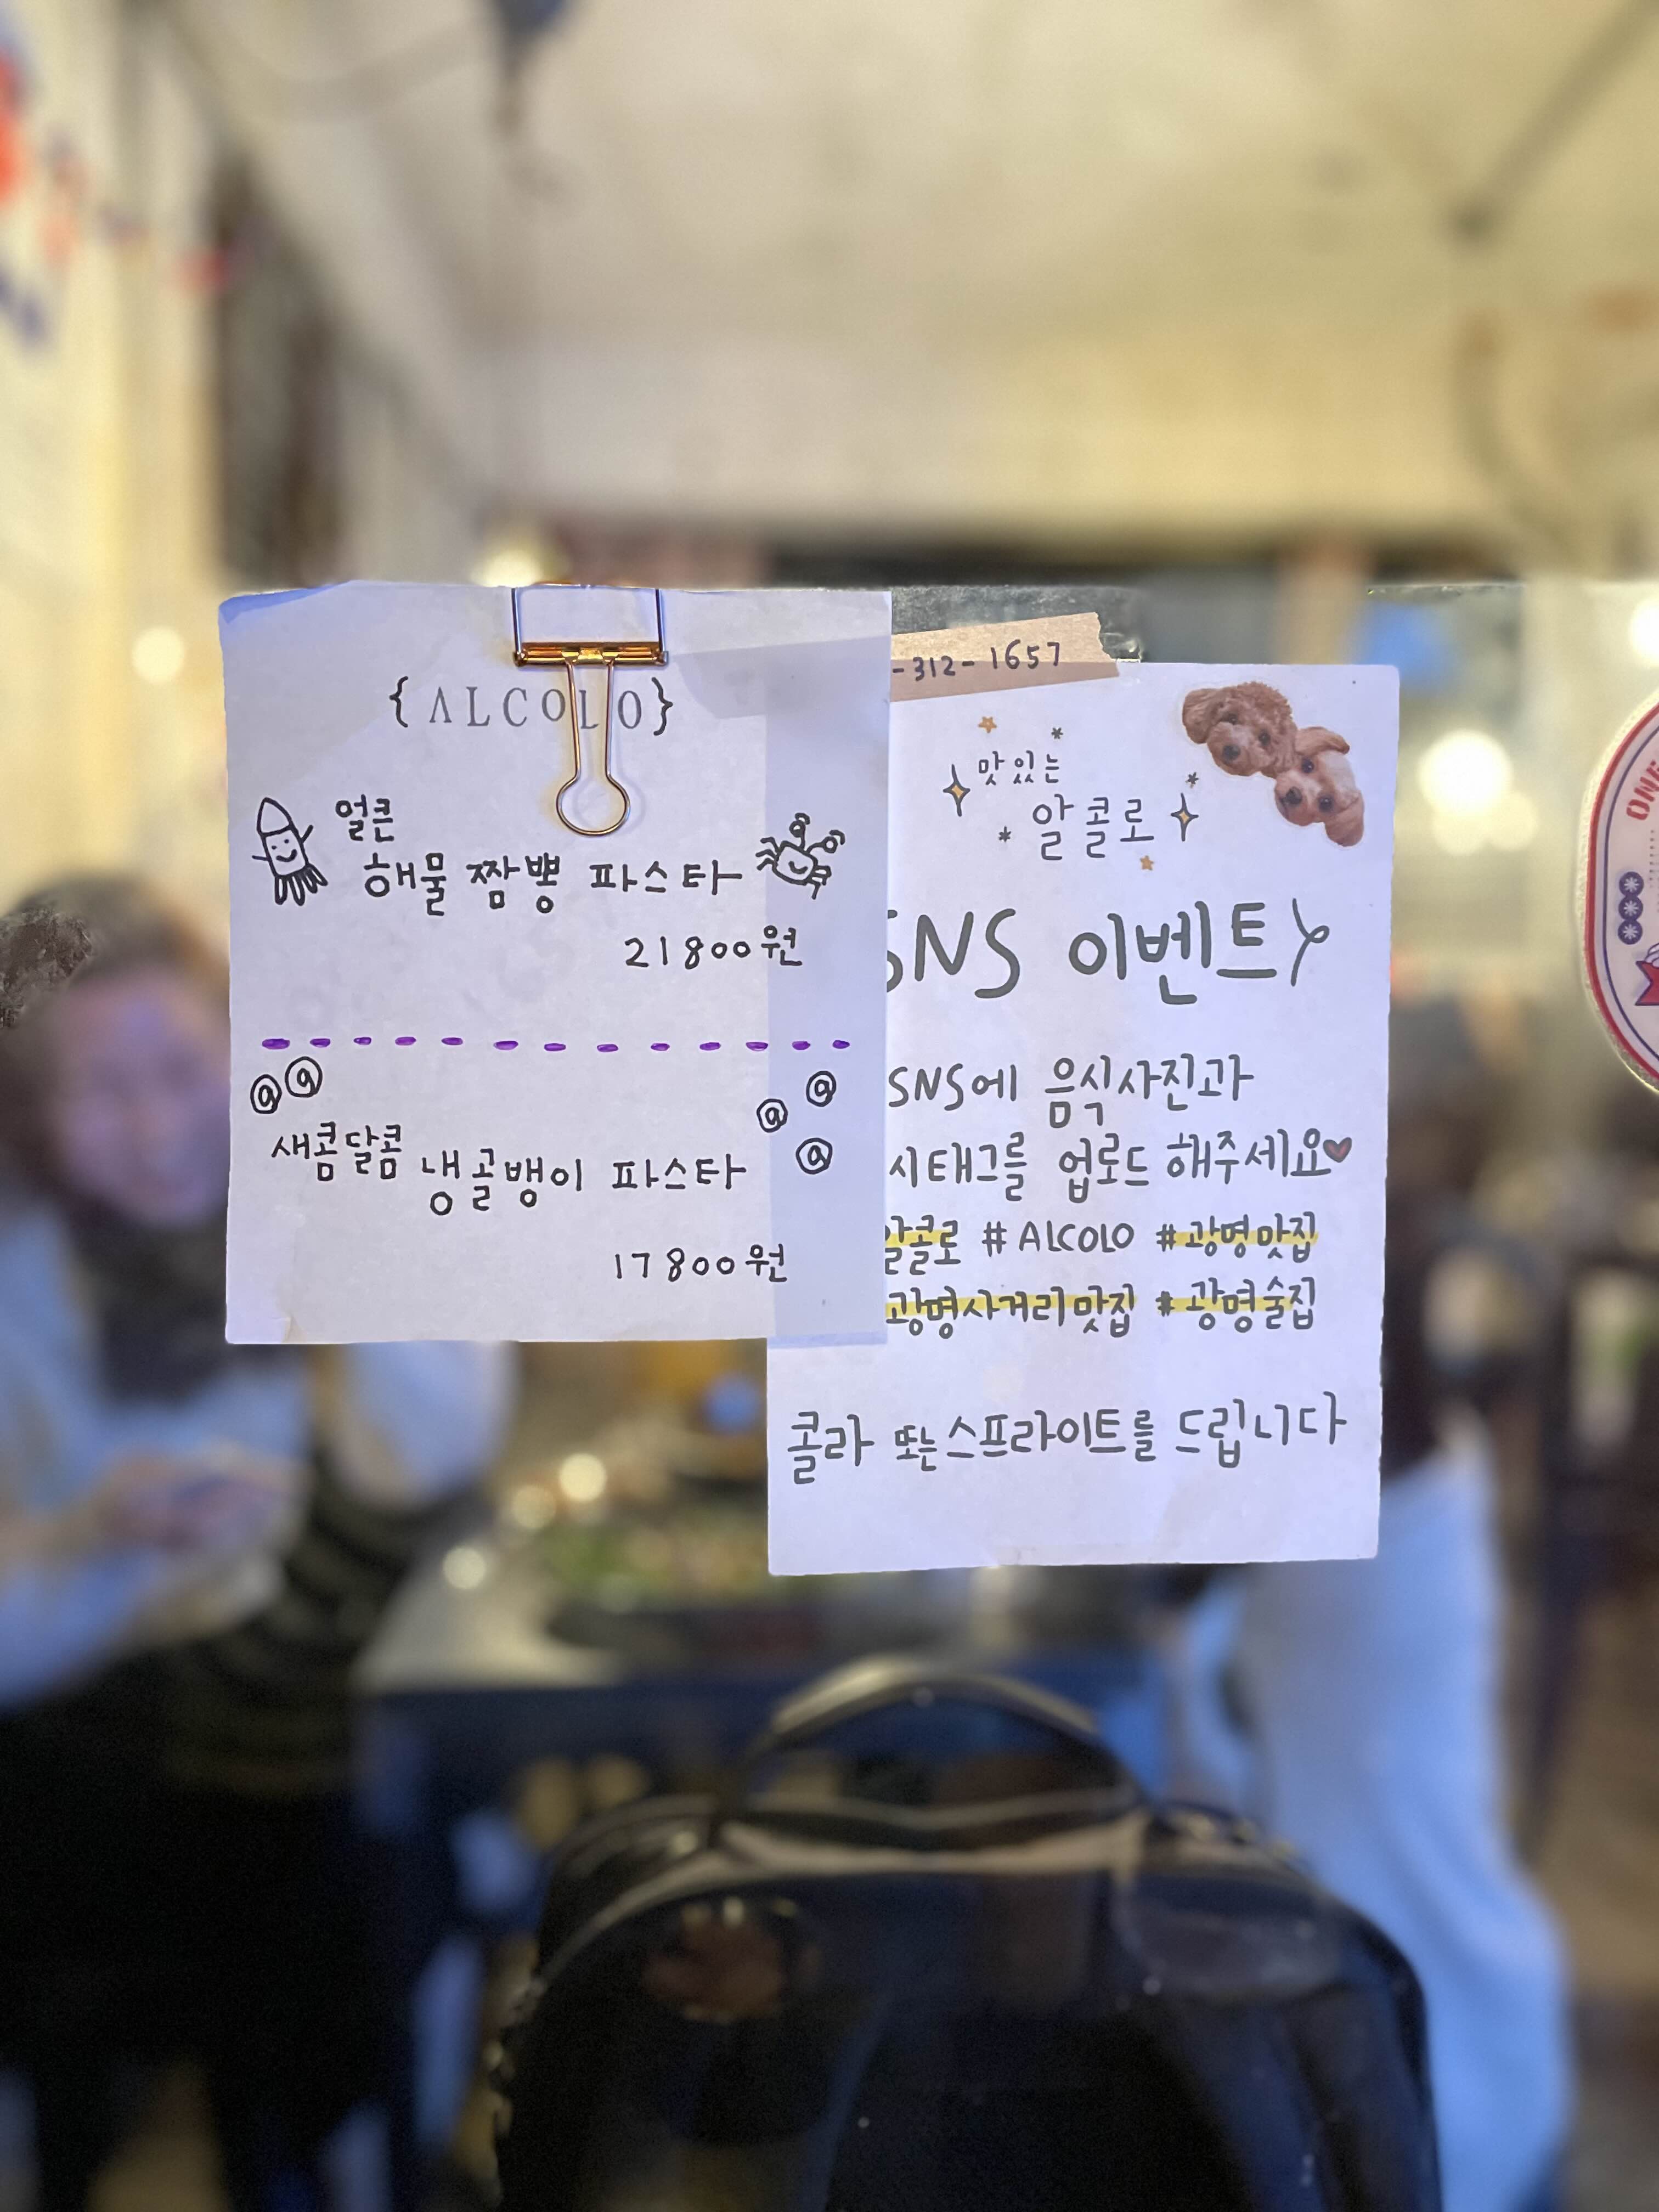 {ALCOLO}
얼큰
해물 짬뽕 파스타
21800원
새콤달콤 냉골뱅이 파스타
17800원
-312-1657
맛있는
알콜로
SNS 이벤트
SNS에 음식사진과
시태그를 업로드 해주세요
알콜로 #ALCOLO #광명맛집
광명사거리맛집 #광명술집
콜라 또는 스프라이트를 드립니다